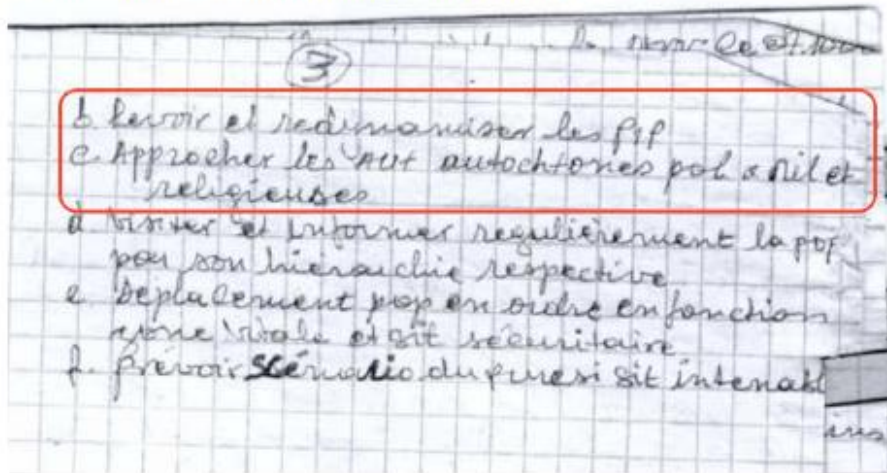 3
b. Revoir et redinamiser les PIP
c. Approcher les AUT autochtones pol & Mil et
religieuses
d. Visiter et informer regulièrement la pop
par son hiérarchie respective
e. Déplacement pop en ordre en fonction
zone vitale et sit sécuritaire
f. Prévoir scénario du pire si sit intenabl